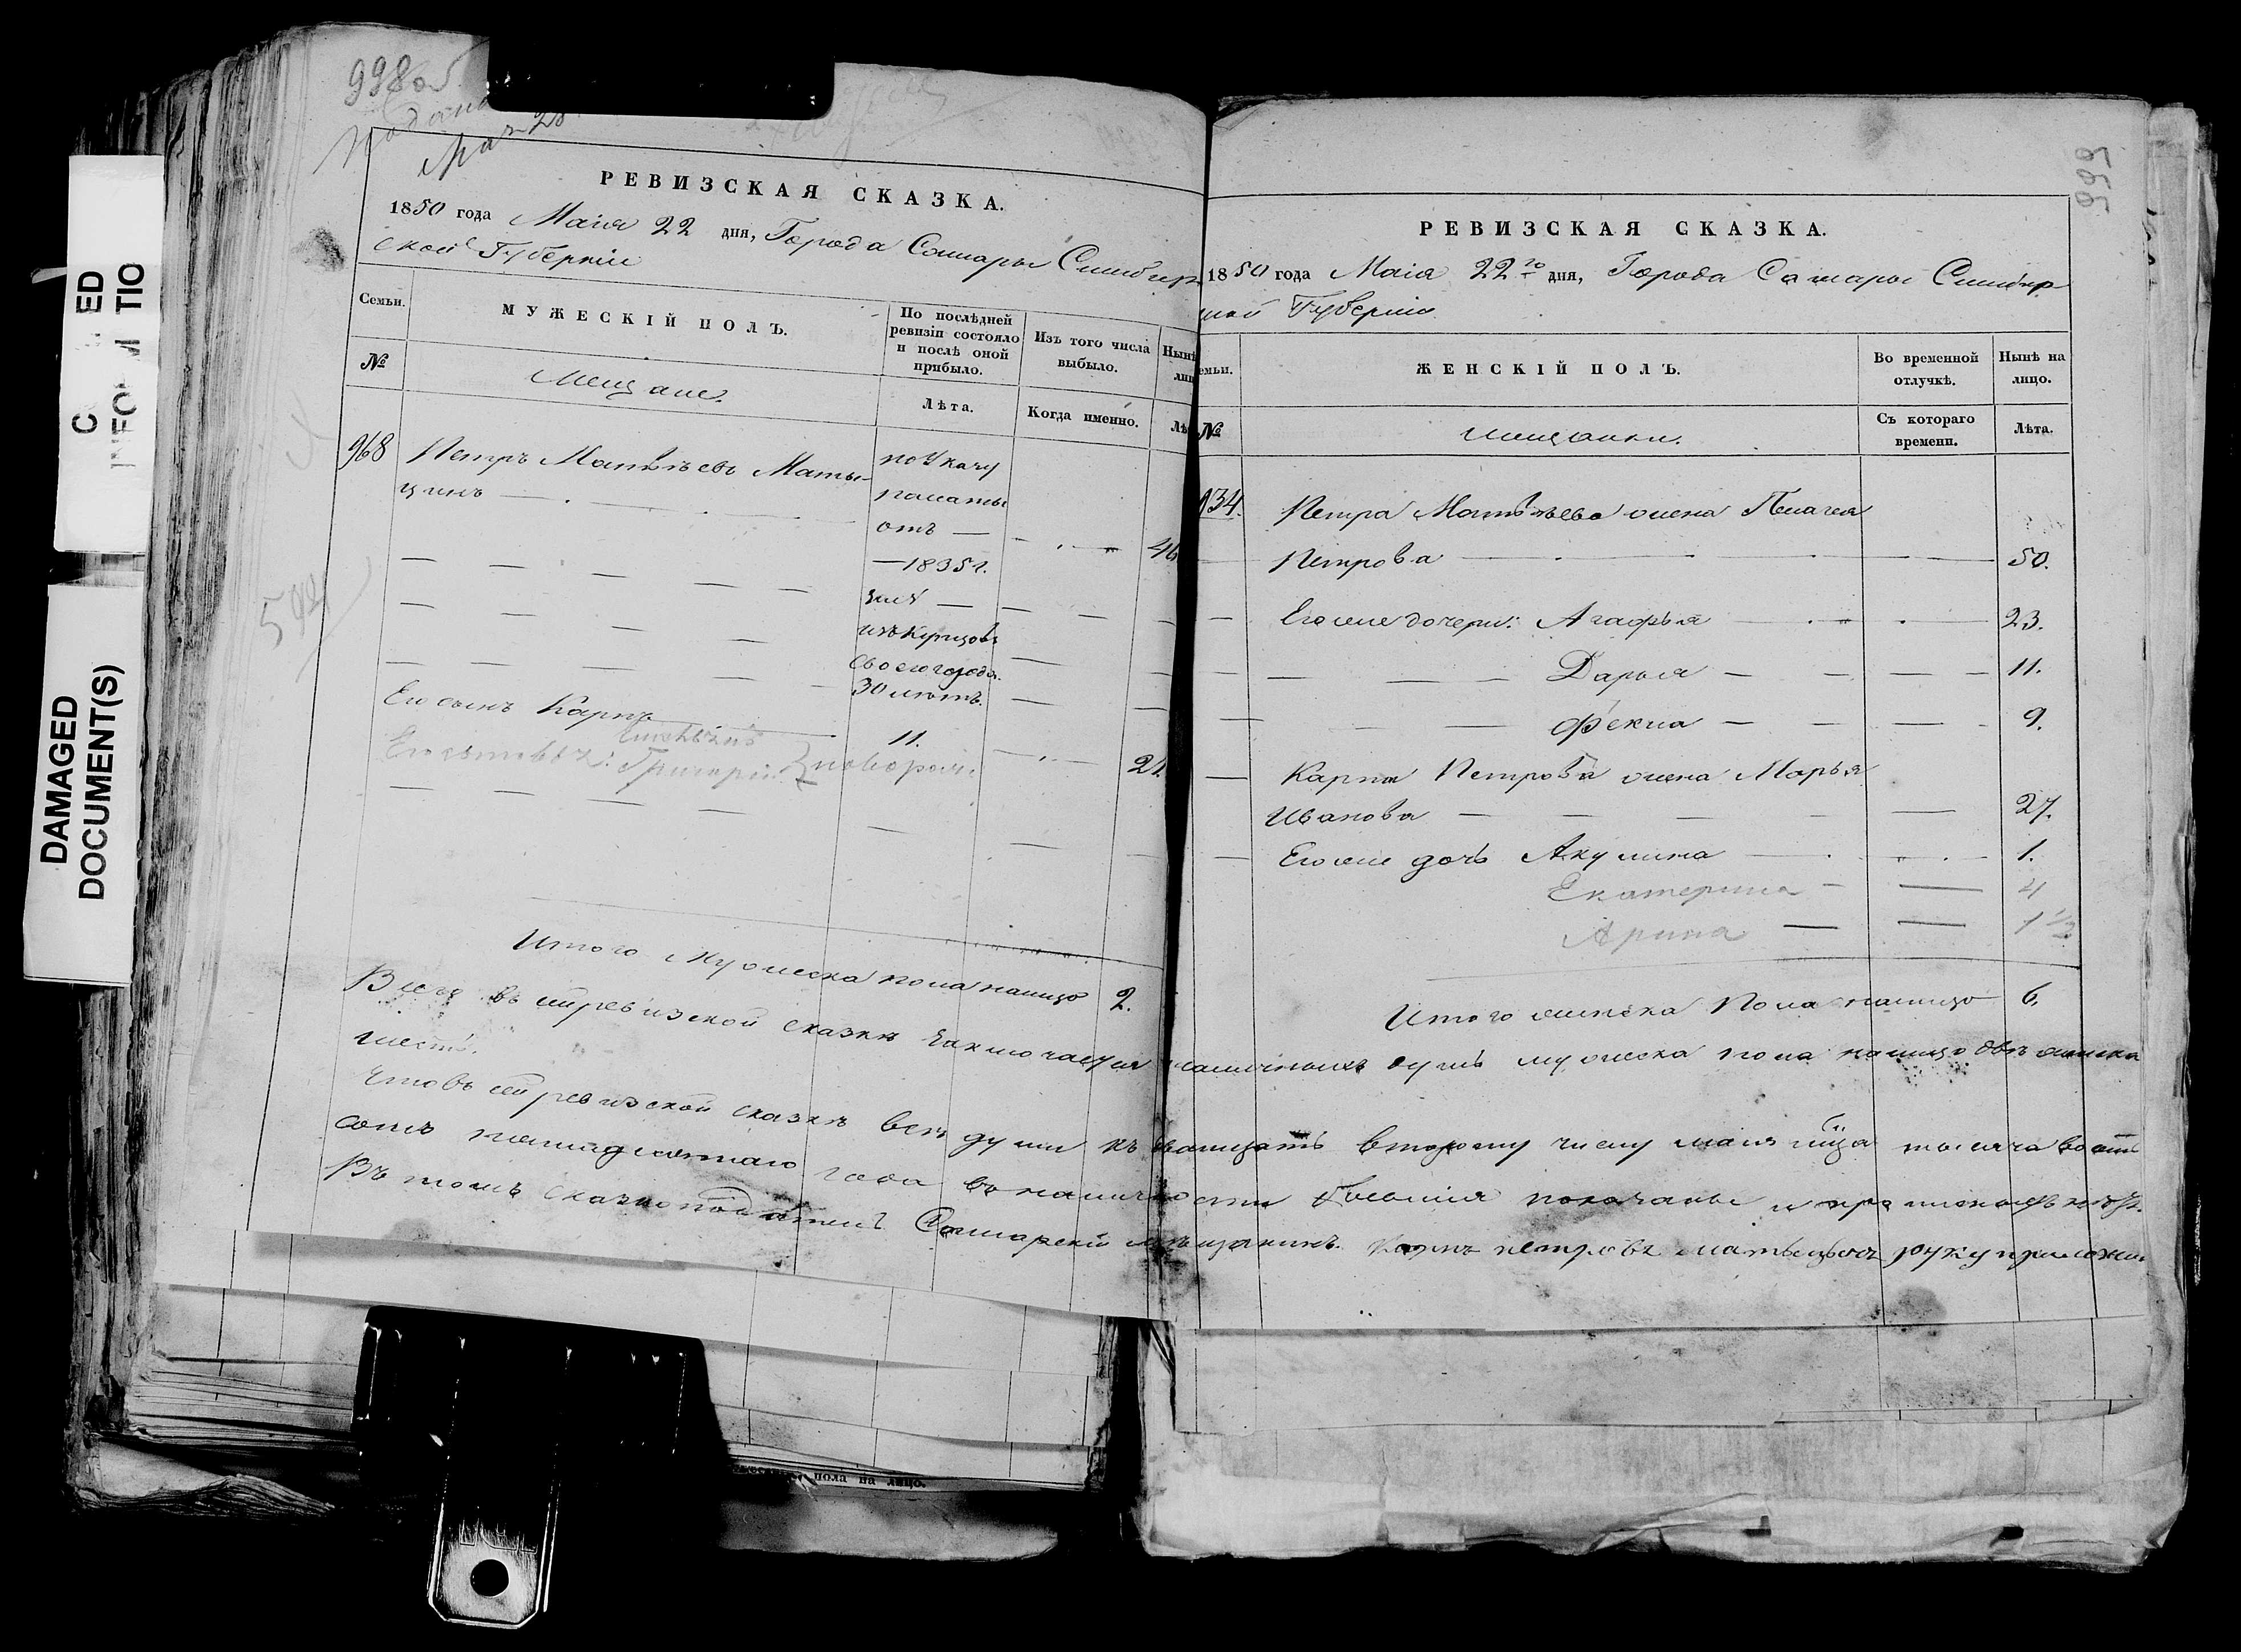 998 об
Подана
Мая 28
РЕВИЗСКАЯ СКАЗКА.
1850 года Маія 22 дня, Города Самары Симбир
ской Губерніи
Семьи.
МУЖЕСКІЙ ПОЛЪ.
По послѣдней
ревизіи состояло
и послѣ оной
прибыло.
Изъ того числа
выбыло.
Нынѣ
№
Мещане.
Лѣта.
Когда именно.
968
Петръ Матвѣевъ Маты-
цинъ
по Указу
палаты
отъ —
— 1835 г.
изъ Купцовъ
своего города
30 лѣтъ.
46
Его сынъ Карпъ
11.
21.
Григорій новорож.
592
Итого Мужеска пола налицо 2.
999
РЕВИЗСКАЯ СКАЗКА.
1850 года Маія 22го дня, Города Самары Симбир
ской Губерніи
емьи.
ЖЕНСКІЙ ПОЛЪ.
Во временной
отлучкѣ.
Нынѣ на
лицо.
№
мещанки.
Съ котораго
времени.
Лѣта.
934.
Петра Матвѣева жена Пелагея
Петрова 50.
Его же дочери: Агафья 23.
Дарья 11.
Фекла 9.
Карпа Петрова жена Марья
Иванова 27.
Его же дочь Акулина 1.
Екатерина 4
Арина 1 1/2
Итого женска Пола налицо 6.
Всего въ сей ревизской сказкѣ заключается наличныхъ душъ мужеска пола налицо двѣ женска
шесть.
Что въ сей ревизской сказкѣ всѣ души къ двадцать второму числу маія мца тысяча восемь
сотъ пятидесятаго года въ наличности бывшія показаны и прописныхъ нѣтъ.
Въ томъ сказкоподатель Самарскій мѣщанинъ Карпъ петровъ матыцынъ руку приложил
пола на лицо.
DAMAGED
DOCUMENT(S)